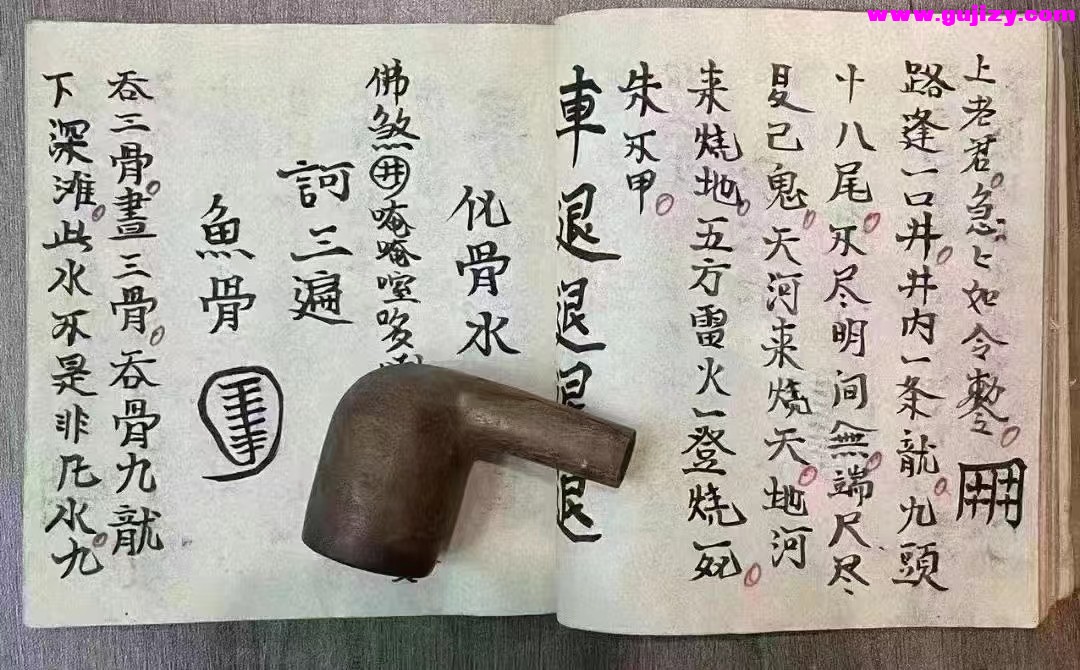 www.gujizy.com
上老君。急〻如令敕令。
路逢一口井。井内一条龍。九頭
十八尾。不尽明间無。端尺尽
夏己鬼。天河来烧天。地河
来烧地。五方雷火一登烧死。
朱不甲。
車退退退退
化骨水
佛煞井唵唵
訶三遍
魚骨
吞三骨。畫三骨。吞骨九龍
下深滩。此水不是非凡水。九